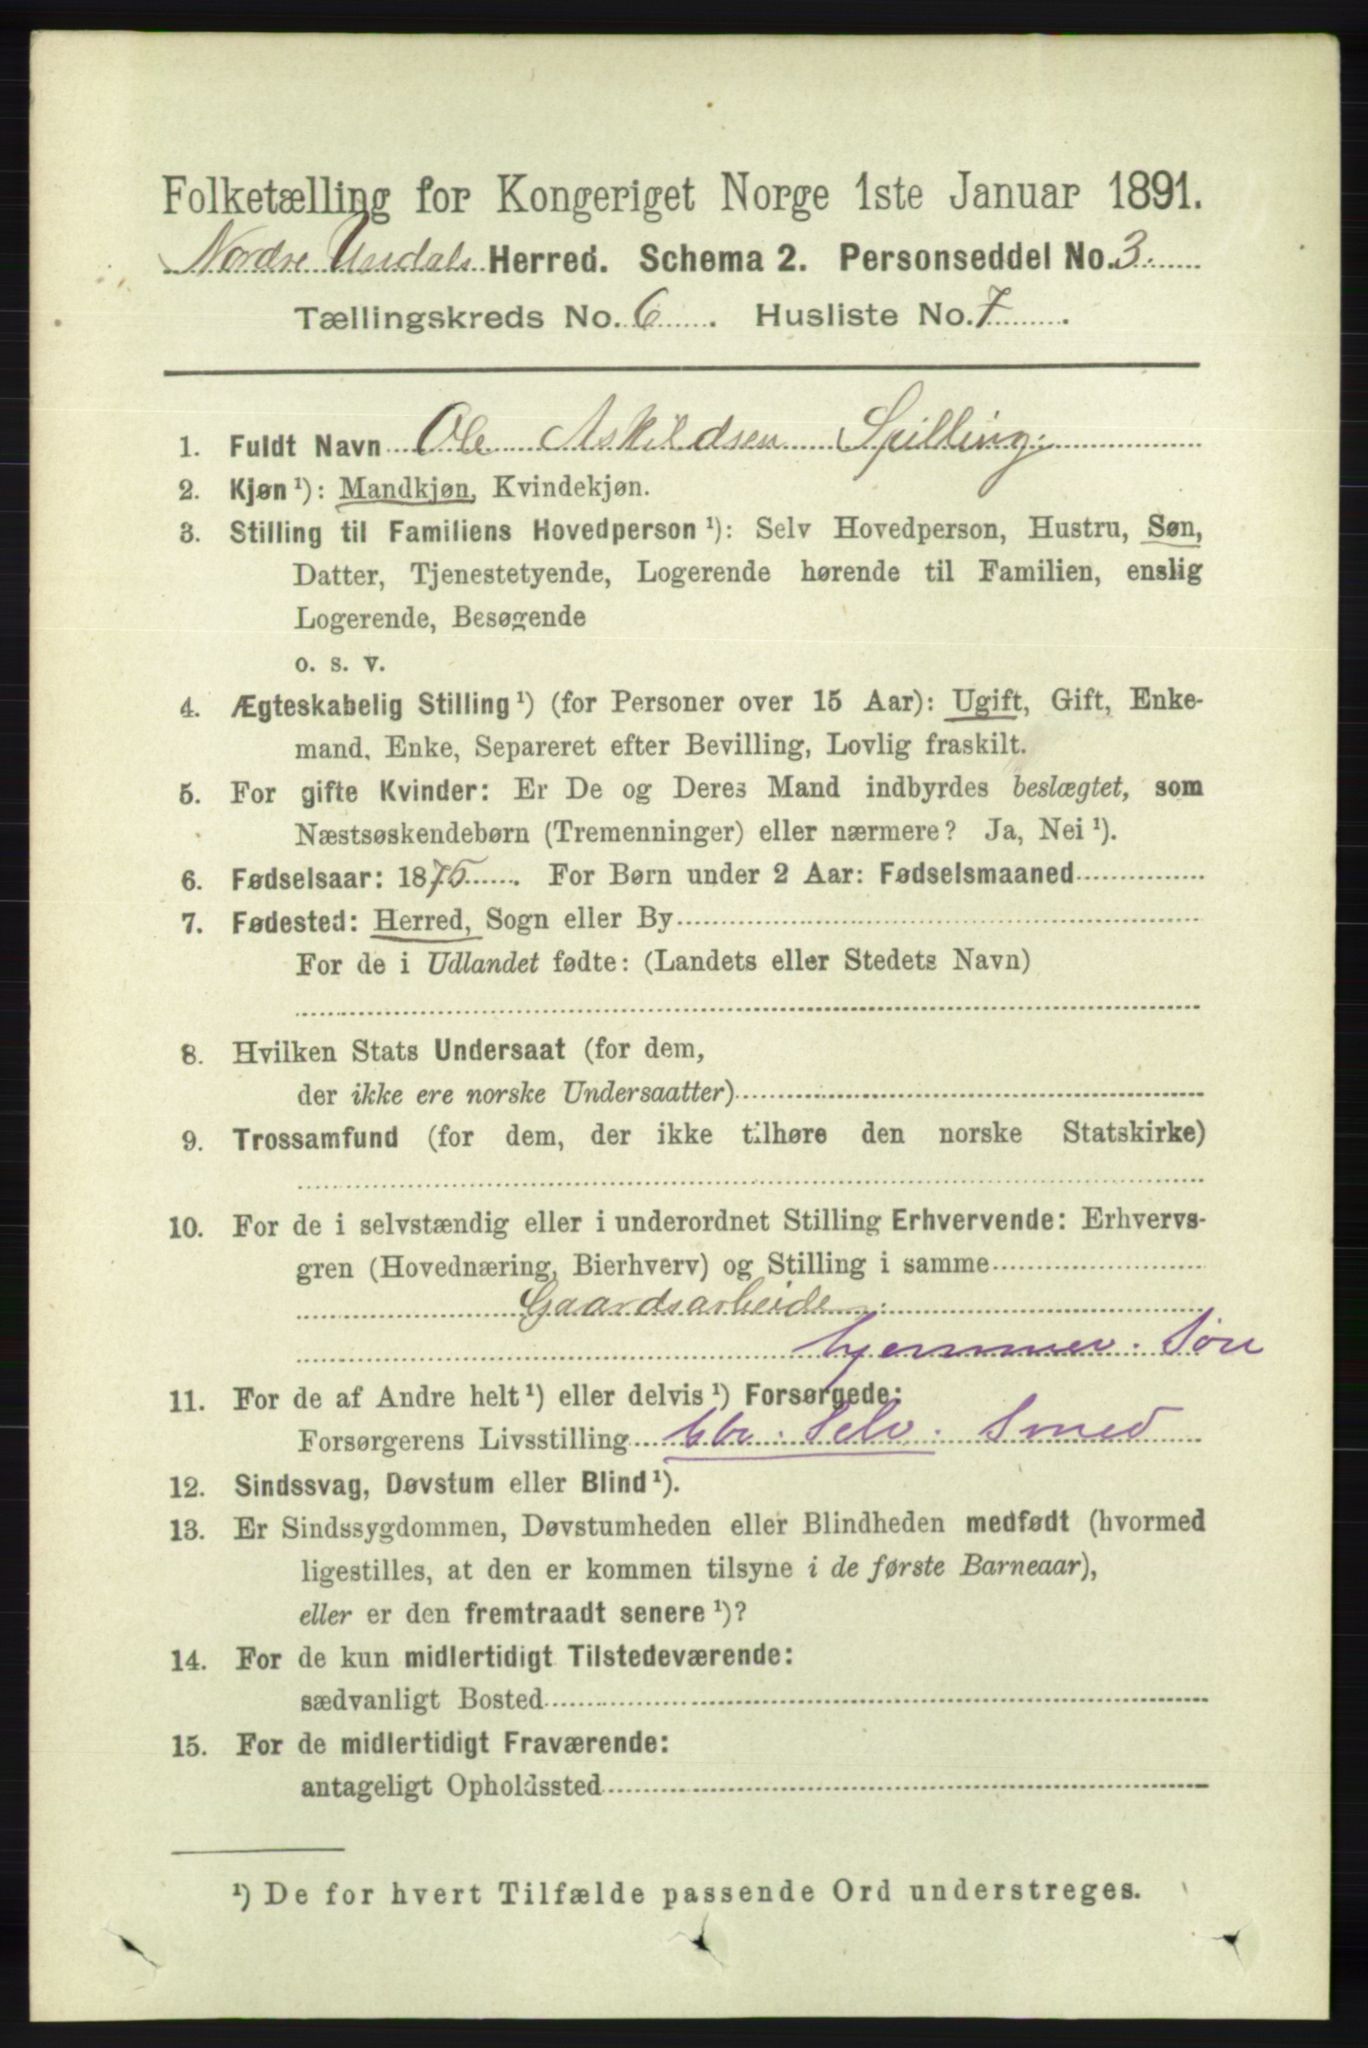 Folketælling for Kongeriget Norge 1ste Januar 1891.
Nordre Undals Herred. Schema 2. Personseddel No. 3.
Tællingskreds No. 6. Husliste No. 7.
1. Fuldt Navn Ole Askildsen Spilling.
2. Kjøn ¹): Mandkjøn, Kvindekjøn.
3. Stilling til Familiens Hovedperson ¹): Selv Hovedperson, Hustru, Søn,
Datter, Tjenestetyende, Logerende hørende til Familien, enslig
Logerende, Besøgende
o. s. v.
4. Ægteskabelig Stilling ¹) (for Personer over 15 Aar): Ugift, Gift, Enke-
mand, Enke, Separeret efter Bevilling, Lovlig fraskilt.
5. For gifte Kvinder: Er De og Deres Mand indbyrdes beslægtet, som
Næstsøskendebørn (Tremenninger) eller nærmere? Ja, Nei ¹).
6. Fødselsaar: 1875. For Børn under 2 Aar: Fødselsmaaned
7. Fødested: Herred, Sogn eller By
For de i Udlandet fødte: (Landets eller Stedets Navn)
8. Hvilken Stats Undersaat (for dem,
der ikke ere norske Undersaatter)
9. Trossamfund (for dem, der ikke tilhøre den norske Statskirke)
10. For de i selvstændig eller i underordnet Stilling Erhvervende: Erhvervs-
gren (Hovednæring, Bierhverv) og Stilling i samme
Gaardsarbeide.
hjemmev. Søn
11. For de af Andre helt ¹) eller delvis ¹) Forsørgede:
Forsørgerens Livsstilling Gbr. Selv. Smed
12. Sindssvag, Døvstum eller Blind ¹).
13. Er Sindssygdommen, Døvstumheden eller Blindheden medfødt (hvormed
ligestilles, at den er kommen tilsyne i de første Barneaar),
eller er den fremtraadt senere ¹)?
14. For de kun midlertidigt Tilstedeværende:
sædvanligt Bosted
15. For de midlertidigt Fraværende:
antageligt Opholdssted
¹) De for hvert Tilfælde passende Ord understreges.